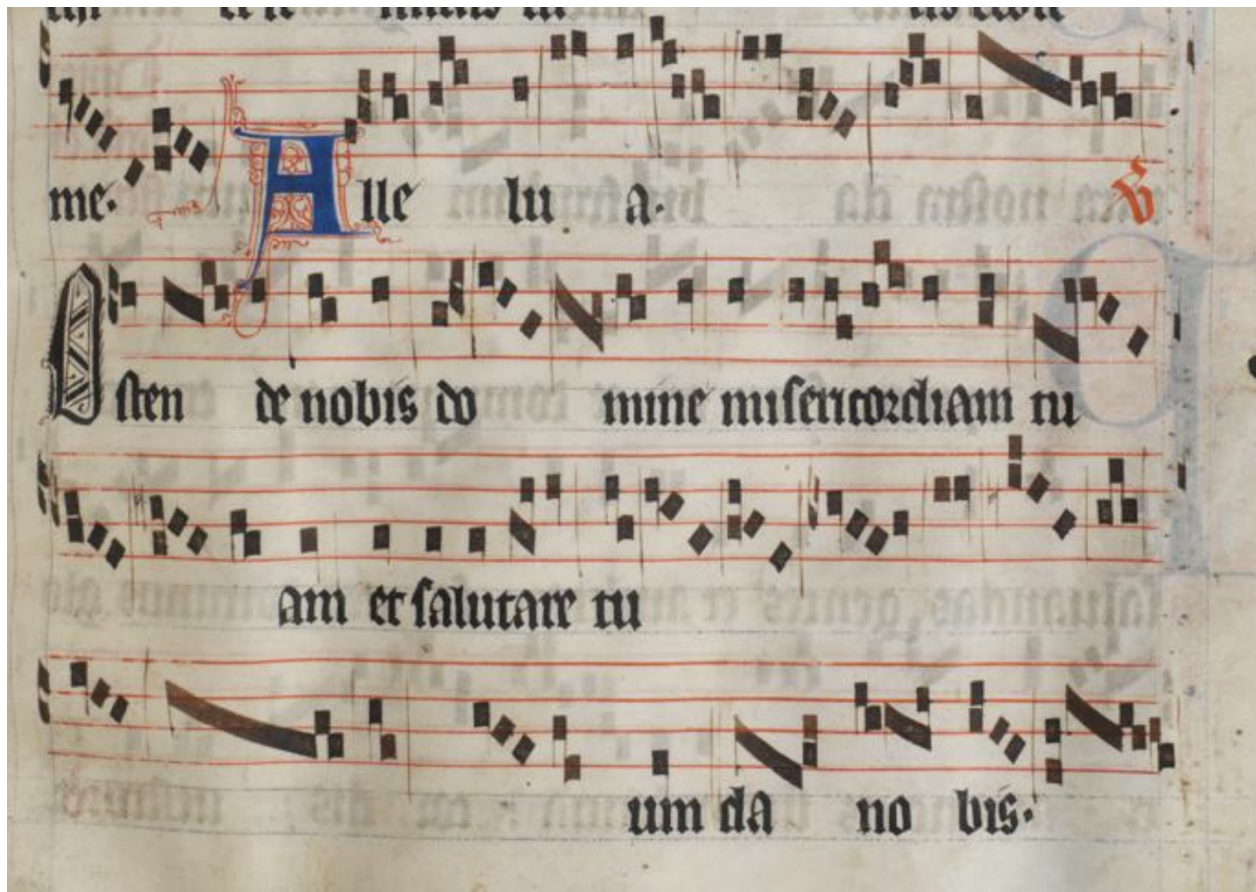 me. Alle lu a. V
Osten de nobis do mine misericordiam tu
am et salutare tu
um da no bis.